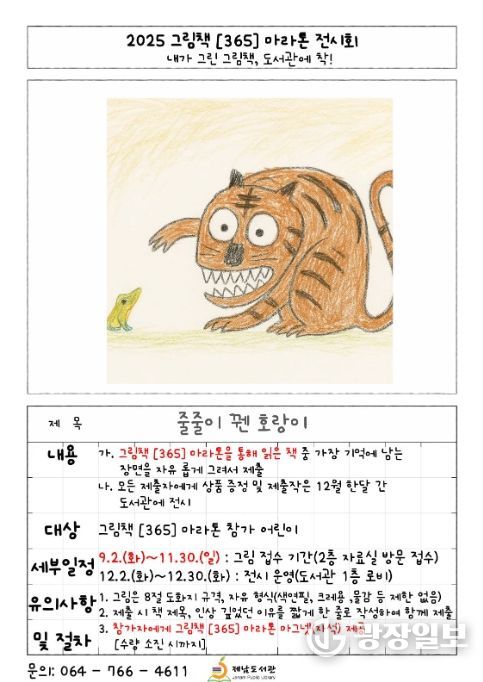 2025 그림책 [365] 마라톤 전시회
내가 그린 그림책, 도서관에 착!
제 목 줄줄이 꿴 호랑이
내용 가. 그림책 [365] 마라톤을 통해 읽은 책 중 가장 기억에 남는
장면을 자유 롭게 그려서 제출
나. 모든 제출자에게 상품 증정 및 제출작은 12월 한달 간
도서관에 전시
대상 그림책 [365] 마라톤 참가 어린이
세부일정 9.2.(화)~11.30.(일) : 그림 접수 기간(2층 자료실 방문 접수)
12.2.(화)~12.30.(화) : 전시 운영(도서관 1층 로비)
유의사항 1. 그림은 8절 도화지 규격, 자유 형식(색연필, 크레용, 물감 등 제한 없음)
2. 제출 시 책 제목, 인상 깊었던 이유를 짧게 한 줄로 작성하여 함께 제출
및 절차 3. 참가자에게 그림책 [365] 마라톤 마그넷(자석)
[수량 소진 시까지]
광장일보
문의: 064 - 766 - 4611
제남도서관
Jenam Public Library